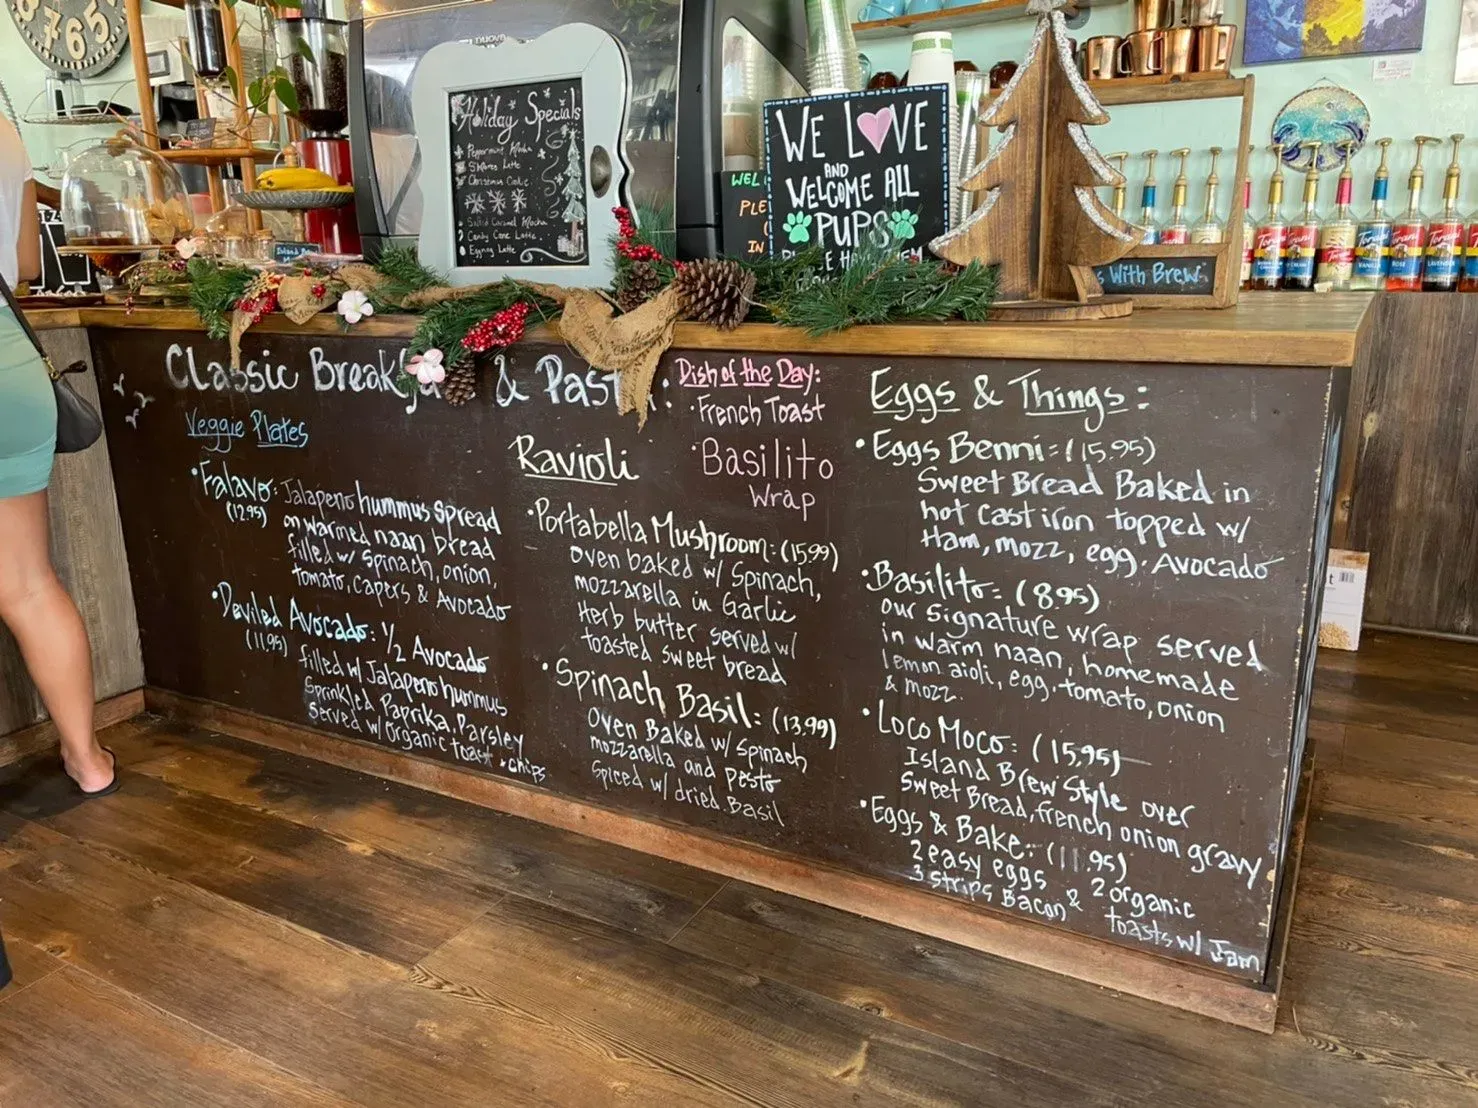 Holiday Specials
Peppermint Mocha
S'Mores Latte
Christmas Cookie
Salted Caramel Mocha
Candy Cane Latte
Eggnog Latte
WE LOVE
AND
WELCOME ALL
PUPS
WEL
PLE
IN
Island
With Brew
Torani
Torani
Torani
VANILLA
ROSE
LAVENDER
Classic Breakfa & Pas :
Veggie Plates
• Falavo: Jalapeno hummus Spread
(12.95) on warmed naan bread
filled w/ Spinach, onion,
tomato, capers & Avocado
• Deviled Avocado: 1/2 Avocado
(11.95) filled w/ Jalapeno hummus
Sprinkled Paprika, Parsley
Served w/ Organic toast & chips
Dish of the Day:
• French Toast
• Basilito
Wrap
Ravioli
• Portabella Mushroom: (15.99)
oven baked w/ Spinach,
mozzarella in Garlic
Herb butter served w/
toasted sweet bread
• Spinach Basil: (13.99)
Oven Baked w/ Spinach
mozzarella and pesto
Spiced w/ dried Basil
Eggs & Things:
• Eggs Benni: (15.95)
Sweet Bread Baked in
hot cast iron topped w/
Ham, mozz, egg, Avocado
• Basilito: (8.95)
our signature wrap served
in warm naan, homemade
lemon aioli, egg, tomato, onion
& mozz.
• Loco Moco: (15.95)
Island Brew Style over
Sweet Bread, french onion gravy
• Eggs & Bake: (11.95)
2 easy eggs 2 organic
3 strips Bacon & toasts w/ Jam